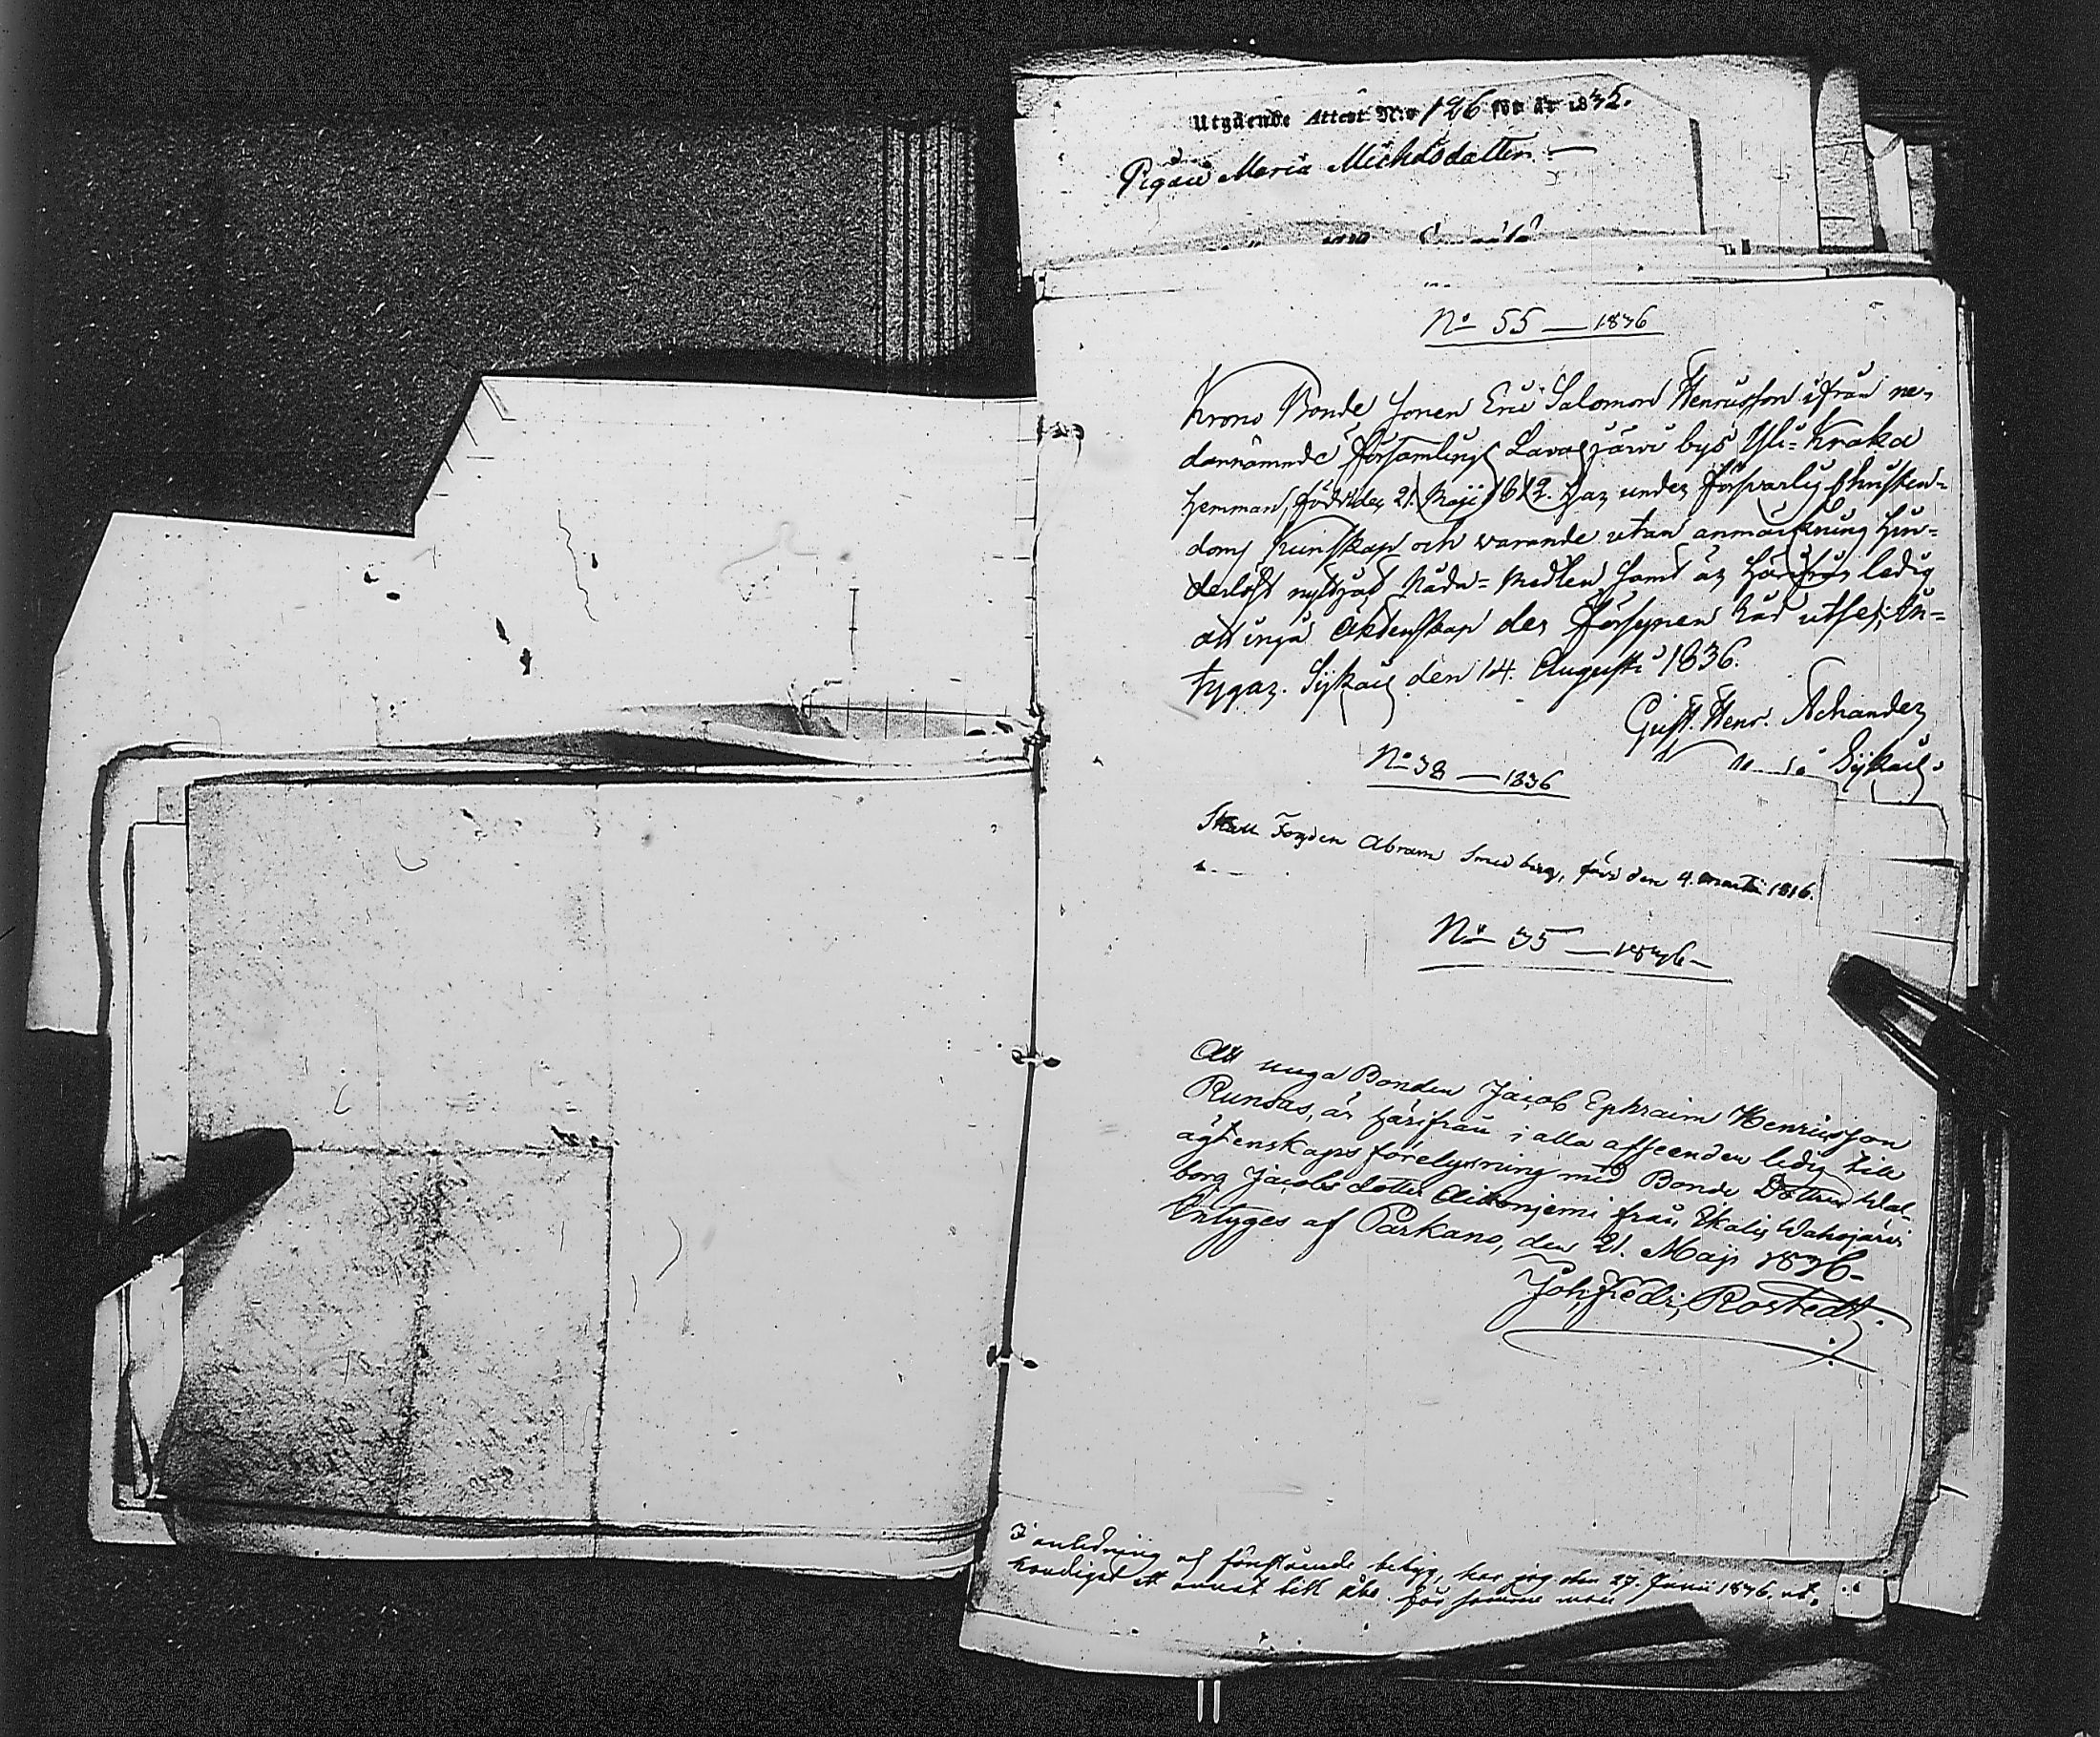 Utgående Attest N:o 126 för år 1832.
Pigan Maria Michelsdotter
No 55 — 1836
Krono Bonde Sonen Eric Salomon Henricsson ifrån ne-
dannämnde Församlings Lavasjärvi bys Yli-Kraka
Hemman, född den 21. Maji 1812. Har under försvarlig Christen-
doms kunskap och warande utan anmärkning hin-
derlöst nyttjat Nåda-Medlen samt är härifrån ledig
att ingå Äktenskap der Försynen Råd utser; In-
tygar. Sjkais den 14. Augusti 1836.
Gust. Henr. Achander
Sjkais.
No 38 — 1836
Stall Fogden Abram Smedberg, född den 4. Martii 1816.
No 35 — 1836 —
Att unga Bonden Jacob Ephraim Henricsson
Rundas, är härifrån i alla afseenden ledig till
ägtenskaps förelysning med Bonde Dottren Wal-
borg Jacobs dotter Aittoniemi från Ikalis Wahojärvi
Intyges af Parkano, den 21. Maji 1836 —
Joh. Fredr. Rostedt.
I anledning af förestående betyg, har jag den 27. Junii 1836. ut-
handigat ett annat till Åbo för samme man